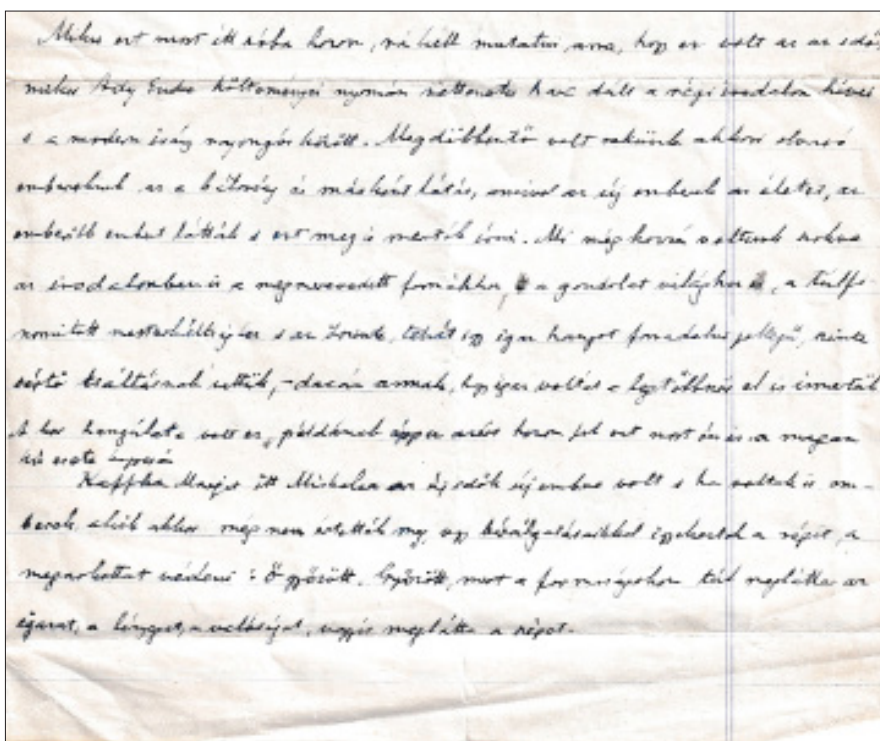 Mikor ezt most itt szóba hozom, rá kell mutatni arra, hogy ez volt az az idő,
mikor Ady Endre költeményei nyomán rettenetes harc dúlt a régi irodalom hívei
s a modern irány rajongói között. Megdöbbentő volt nekünk akkori olvasó
embereknek az a bátorság és másként látás, amivel az új emberek az életet, az
emberibb embert látták s ezt meg is merték írni. Mi még hozzá voltunk szokva
az irodalomban is a megmerevedett formákhoz, a gondolat világához, a túlfi-
nomított mesterkéltséghez s az őszinte, tehát igaz hangot forradalmi jellegű, szinte
sértő kiáltásnak vettük, - dacára annak, hogy igaz voltát a legtöbbször el is ismertük
A kor hangulata volt ez, példának éppen azért hozom fel ezt most én is a magam
kis esete kapcsán
Kaffka Margit itt Miskolcon az új idők új embere volt s ha voltak is em-
berek, akik akkor még nem értették meg, vagy bírálgatásaikkal igyekeztek a régit, a
megszokottat védeni: Ő győzött. Győzött, mert a formaságokon túl meglátta az
igazat, a lényeget, a valóságot, vagyis meglátta a szépet.